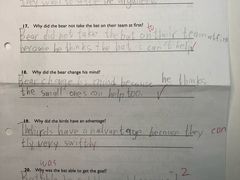 17. Why did the bear not take the bat on their team at first?
Bear did not take the bat on their team
because he thinks the bat is can't help
18. Why did the bear change his mind?
Bear change his mind because he thinks
the small one's can help too.
19. Why did the birds have an advantage?
The birds have an advantage because they can
fly very swiftly
20. Why was the bat able to get the goal?
was
2